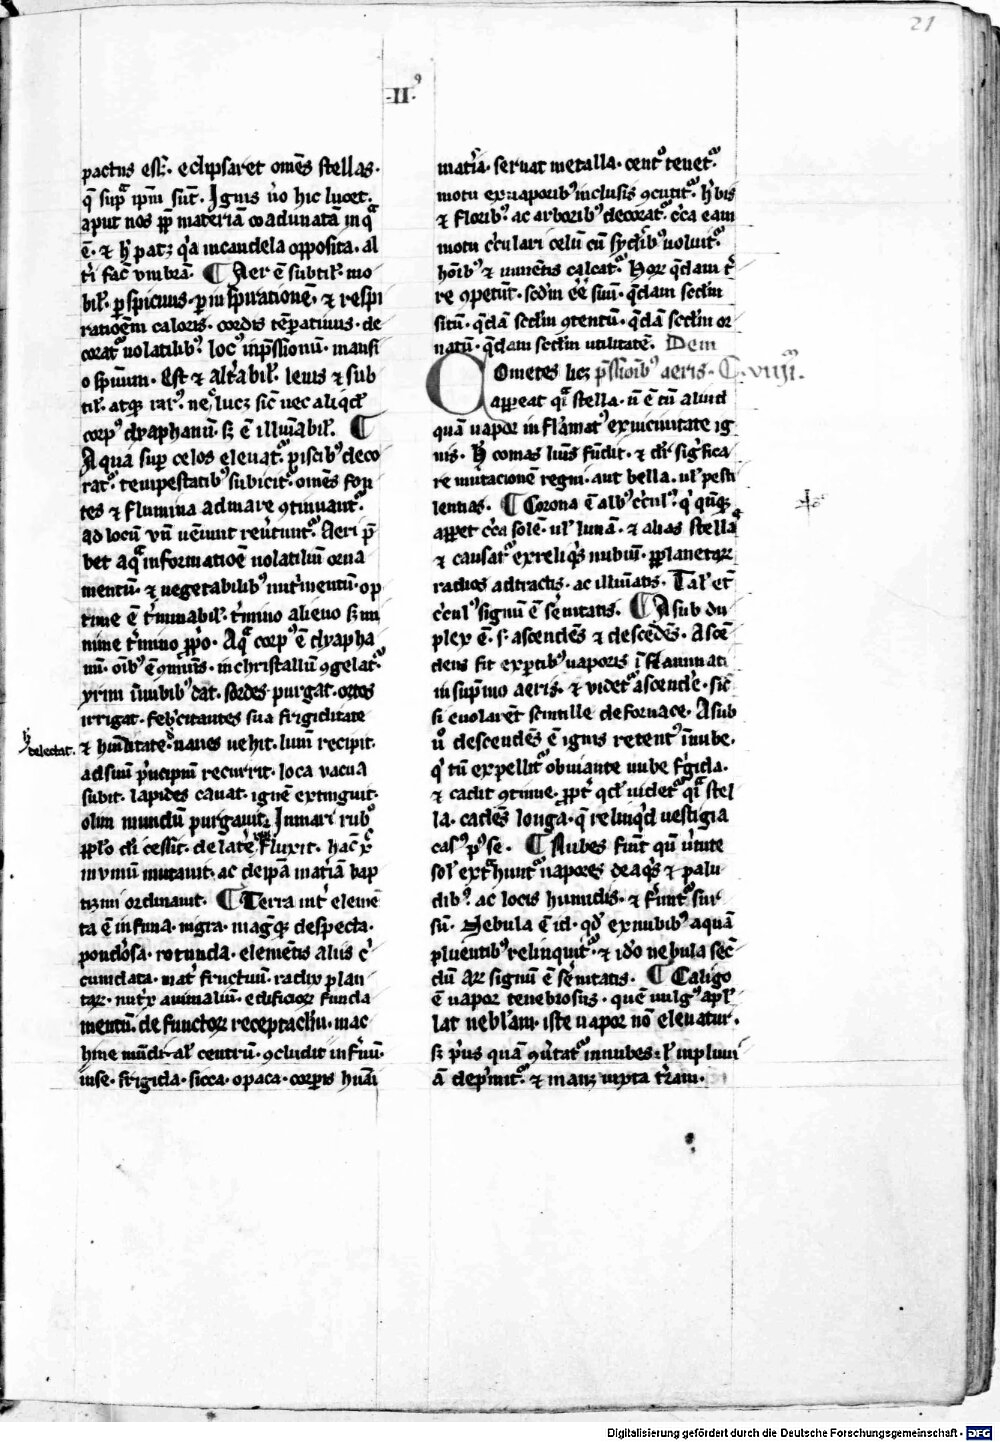 21
·II·⁹
pactus eſſ;. eclipſaret om̄es ſtellas.
q̄ ſupᵃ ip̄m ſūt. Ignis ū̓o hic lucet.
aput nos ꝓp̄ materiā coadunatā in qᵃ
ē. ⁊ h̓ patꝫ q̓a in candela oppoſita. al
t̓i fac̄ vmbrā. ¶ Aer ē ſubtil̓. mo
bil̓. ꝑſpicuus. ꝑ in ſpirationē. ⁊ reſpi
ratioēm caloris. cordis tēꝑatiuus. de
corat᷒ uolatilibꝰ. locꝰ inp̄ſſionū. manſi
o ſp̄uum. Eſt ⁊ alt̓abil̓. leuis ⁊ ſub
til̓. atqꝫ rarꝰ. nec̄ lucꝫ ſic̄ nec aliqd̓
corpꝰ dyaphanū. ſꝫ ē illuīabil̓. ¶
Aqua ſuꝑ celos eleuat᷒. piſcibꝰ deco
rat᷒. tempeſtatibꝰ ſubicit᷒. om̄es fon
tes ⁊ flumina ad mare ꝯtinuant᷒.
ad locū vn̄ ueniunt reu̓tunt᷒. Aeri p̄
bet aqᵃ informatioē uolatiliū orna
mentū. ⁊ uegetabilibꝰ nutͥmentū. op
time ē t̓minabil̓. t̓mino alieno ſꝫ mi
nime t̓mino ꝓp̓o. Aqᵃ corpꝰ ē dyapha
nū. oībꝰ ē ꝯmūis. in chriſtallū ꝯgelat᷒.
yrim nubibꝰ dat. ſordes purgat. ortos
irrigat. feb̓citantes ſua frigiditate
⁊ hūiditate. naues uehit. lum̄ recipit.
delectat.
ad ſuū p̓ncipiū recurrit. loca vacua
ſubit. lapides cauat. ignē extinguit.
olim mundū purgauit. In mari rubꝰ
ꝓpl̓o dei ceſſit. de lat̓e fluxit. hac̄
in vinū mutauit. ac de ip̄a mat̓iā bap
tizmi ordinauit. ¶ Terra int̓ elemē
ta ē infima. nigra. magꝫ deſpecta.
pond̓oſa. rotunda. elemētis aliis c̓
cumdata. mat̓ fructuū. radix plan
taꝝ. nut̓x animaliū. edificioꝝ funda
mentū. defunctoꝝ receptacl̓m. mac
hine mūdi al̓ centrū. ꝯcludit infim̄.
inſe. frigida. ſicca. opaca. corꝑis hūai
mat̓ia. ſeruat metalla. centͦ tenet᷒.
motu ex uaporibꝰ incluſis ꝯcutit᷒. h̓bis
⁊ floribꝰ. ac arboribꝰ decorat᷒. c̓ca eam
motu c̓culari celū cū ſyd̓ibꝰ uoluit᷒.
hōibꝰ ⁊ iumētis calcat᷒. Hoꝝ qd̄am t̓
re ꝯpetūt. ſcd̄m eē ſuū. qd̄am ſcd̄m
ſitū. qd̄ā ſcd̄m ꝯtentū. qd̄ā ſcd̄m or
natū. qd̄am ſcd̄m utilitatē. Dem
Ometes licꝫ p̄ſſioībꝰ aeris. C. viiij.
appeat qͣi ſtella. n̄ ē tn̄ aliud
quā uapor inflāmatꝰ ex uicinitate ig
nis. H̓ comas lūis fūdit. ⁊ dr̄ ſigͥfica
re mutacionē regni. aut bella. ul̓ peſti
lentias. ¶ Corona ē albꝰ c̓culꝰ. qͥ qn̄qꝫ
appet c̓ca ſolē. ul̓ lunā. ⁊ alias ſtellaſ
⁊ cauſat᷒ ex reliqͥs nubiū. ꝑ planetaꝝ
radios adtractis. ac illuīatis. Tal̓ et̄
c̓culꝰ ſignū ē ſ̓enitatis. ¶ Aſub du
plex ē. ſ. aſcendēs ⁊ deſcēdēs. Aſcē
dens fit ex ꝑtibꝰ uaporis īflāmati
in ſup̓mo aeris. ⁊ videt᷒ aſcend̓e. ſic̄
ſi euolarēt ſcintille de fornace. Aſub
ū̓ deſcendēs ē ignis retentꝰ ī nube.
qͥ tn̄ expellit᷒ obuiante nube fͥgida.
⁊ cadit ꝯtinue. ꝓpt̓ qd̓ uidet᷒ qͣi ſtel
la. cadēs longa. q̄ relinqͥd ueſtigia
caſꝰ pꝰ ſe. ¶ Nubes fiūt qn̄ u̓tute
ſol̓ ext̓hunt᷒ uapores de aqͥs ⁊ palu
dibꝰ. ac locis humidis. ⁊ f̓unt᷒ ſur
ſū. Nebula ē id. qd̓ ex nubibꝰ aquā
pluentibꝰ relinquit᷒. ⁊ id̓o nebula ſec̄
dū Ar ſignū ē ſ̓enitatis. ¶ Caligo
ē uapor tenebroſus. quē uulgꝰ apl̓
lat nebl̓am. iſte uapor nō eleuatur.
ſꝫ p̓us quā ꝯu̓tat᷒ in nubes. ul̓ in pluui
ā dep̓mit᷒. ⁊ manꝫ iuxta t̓ram.
Digitalisierung gefördert durch die Deutsche Forschungsgemeinschaft - DFG